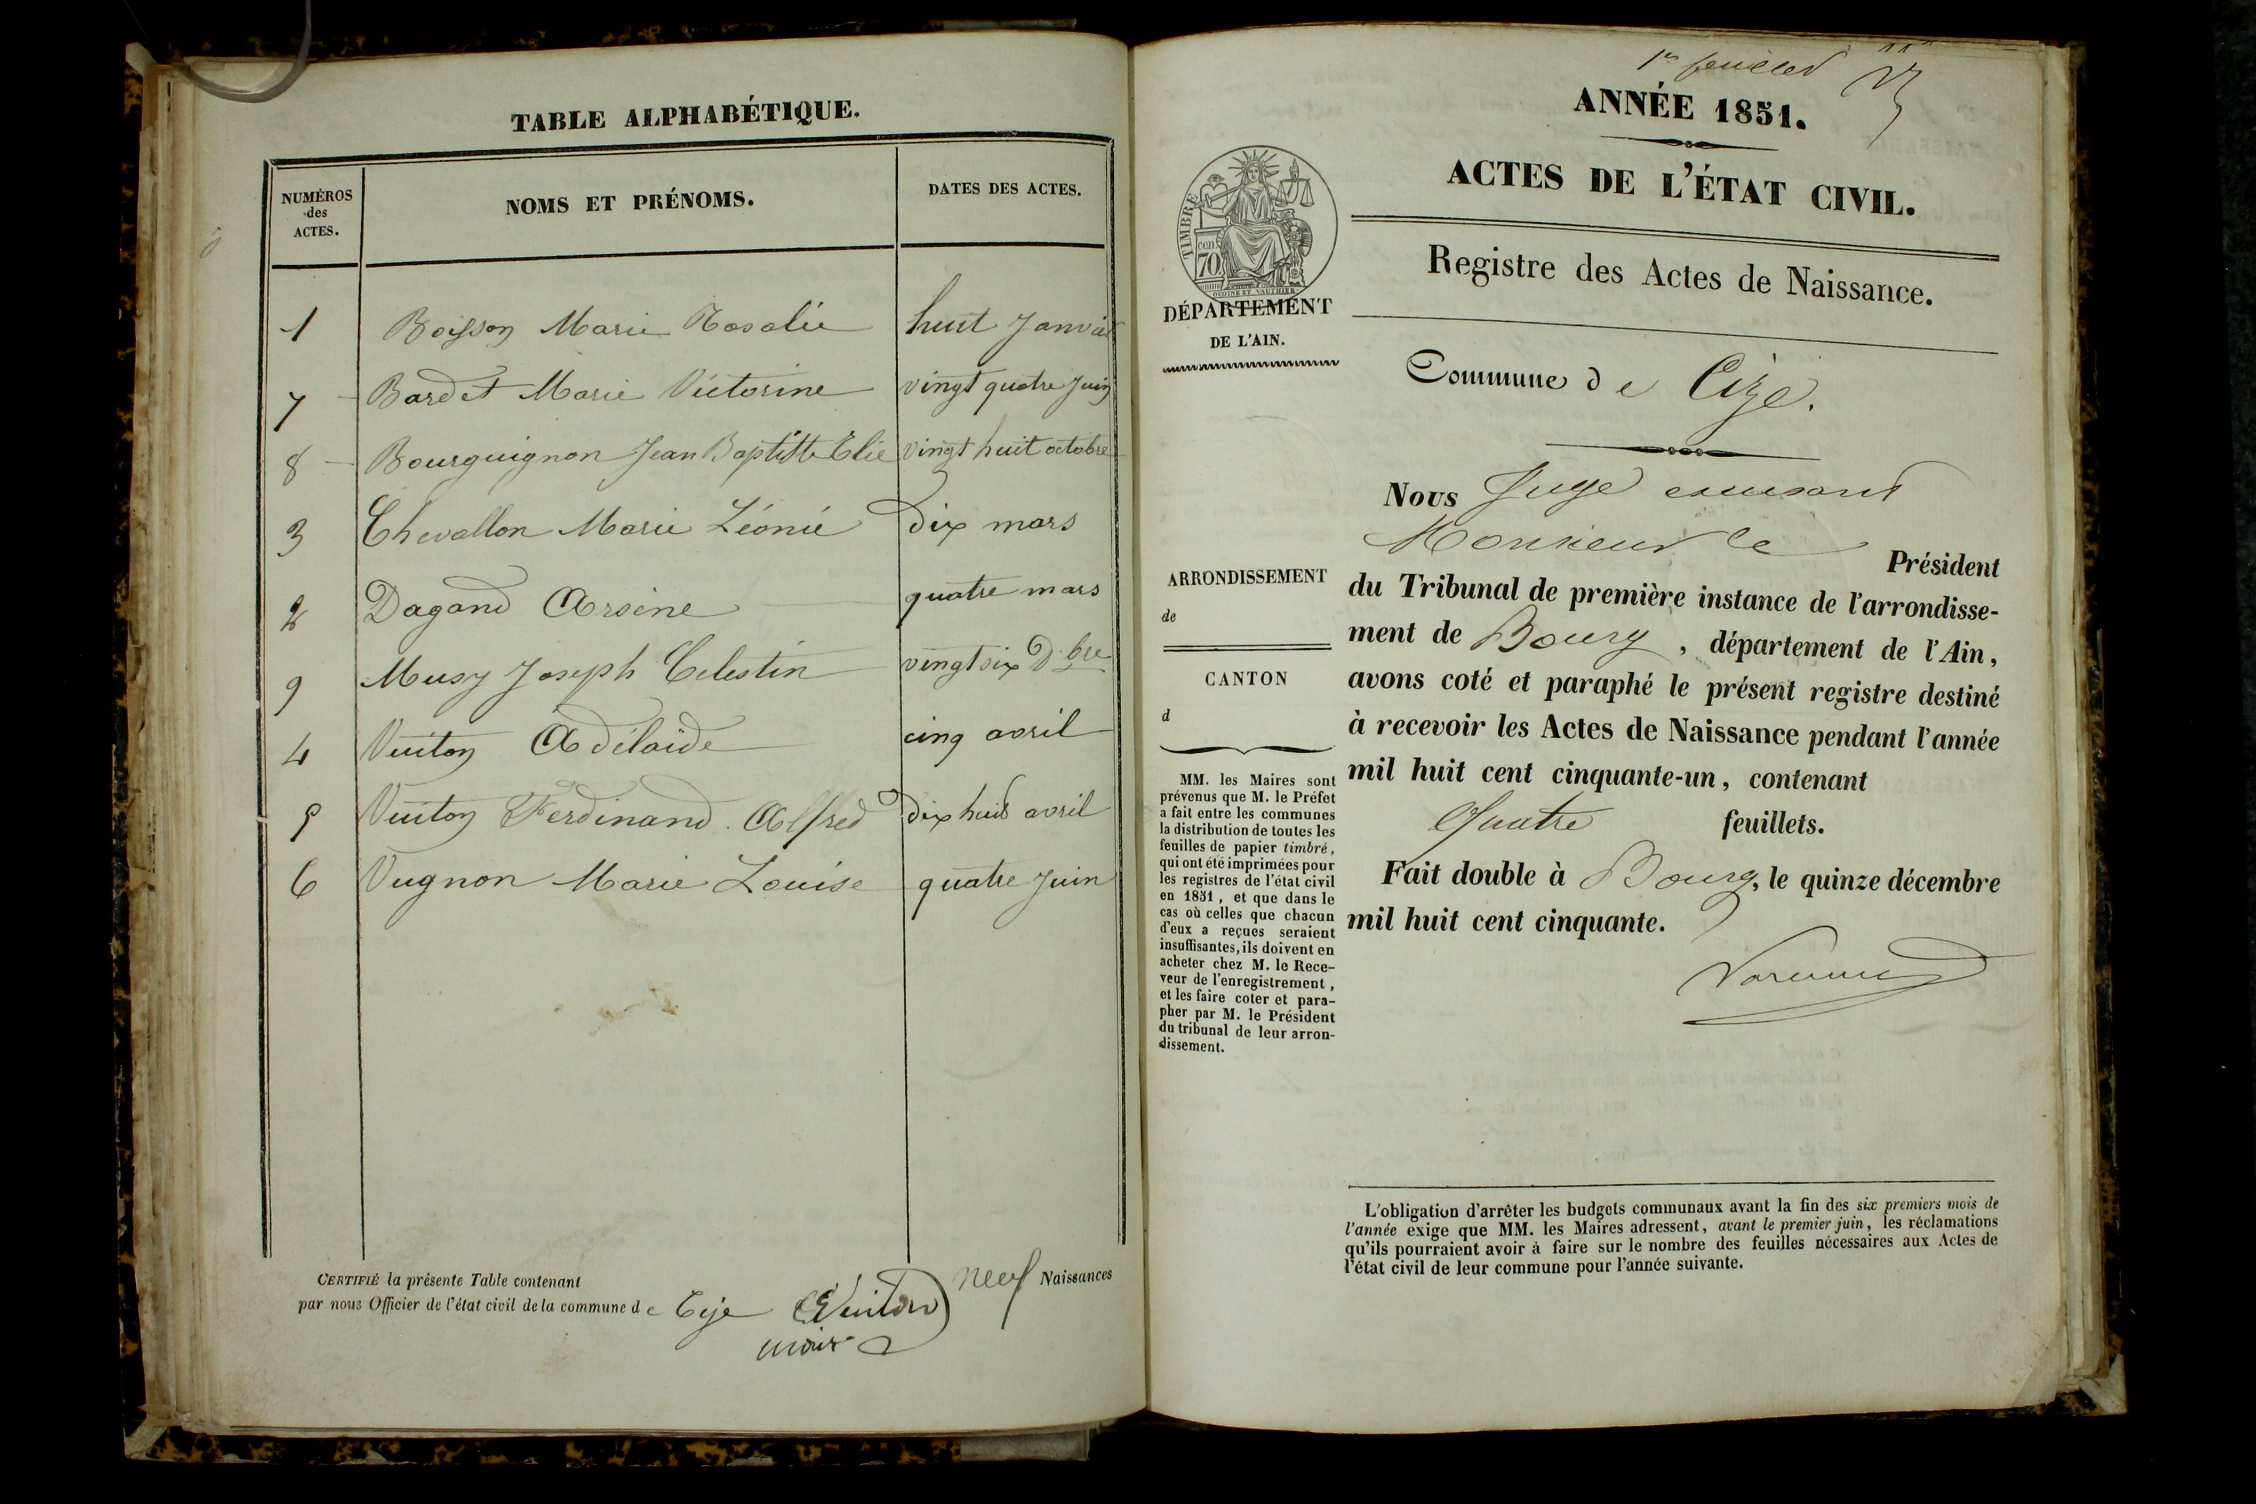 TABLE ALPHABÉTIQUE.
NUMÉROS des ACTES. NOMS ET PRÉNOMS. DATES DES ACTES.
1 Boisson Marie Rosalie huit Janvier
7 Bardet Marie Victorine vingt quatre Juin
8 Bourguignon Jean Baptiste Elie vingt huit octobre
3 Chevallon Marie Léonie Dix mars
2 Dagand Arsène quatre mars
9 Musy Joseph Celestin vingt six Dbre
4 Vuiton Adélaïde cinq avril
5 Vuiton Ferdinand Alfred dix huit avril
6 Vugnon Marie Louise quatre Juin
CERTIFIÉ la présente Table contenant neuf Naissances
par nous Officier de l'état civil de la commune de Cize Vuiton
maire
1er feuillet
ANNÉE 1851.
ACTES DE L'ÉTAT CIVIL.
Registre des Actes de Naissance.
TIMBRE
cen
70
DÉPARTEMENT
DE L'AIN.
Commune de Cize.
ARRONDISSEMENT
de
CANTON
d
MM. les Maires sont
prévenus que M. le Préfet
a fait entre les communes
la distribution de toutes les
feuilles de papier timbré,
qui ont été imprimées pour
les registres de l'état civil
en 1851, et que dans le
cas où celles que chacun
d'eux a reçues seraient
insuffisantes, ils doivent en
acheter chez M. le Rece-
veur de l'enregistrement,
et les faire coter et para-
pher par M. le Président
du tribunal de leur arron-
dissement.
Nous Juge
Monsieur le Président
du Tribunal de première instance de l'arrondisse-
ment de Bourg, département de l'Ain,
avons coté et paraphé le présent registre destiné
à recevoir les Actes de Naissance pendant l'année
mil huit cent cinquante-un, contenant
Quatre feuillets.
Fait double à Bourg, le quinze décembre
mil huit cent cinquante.
L'obligation d'arrêter les budgets communaux avant la fin des six premiers mois de
l'année exige que MM. les Maires adressent, avant le premier juin, les réclamations
qu'ils pourraient avoir à faire sur le nombre des feuilles nécessaires aux Actes de
l'état civil de leur commune pour l'année suivante.